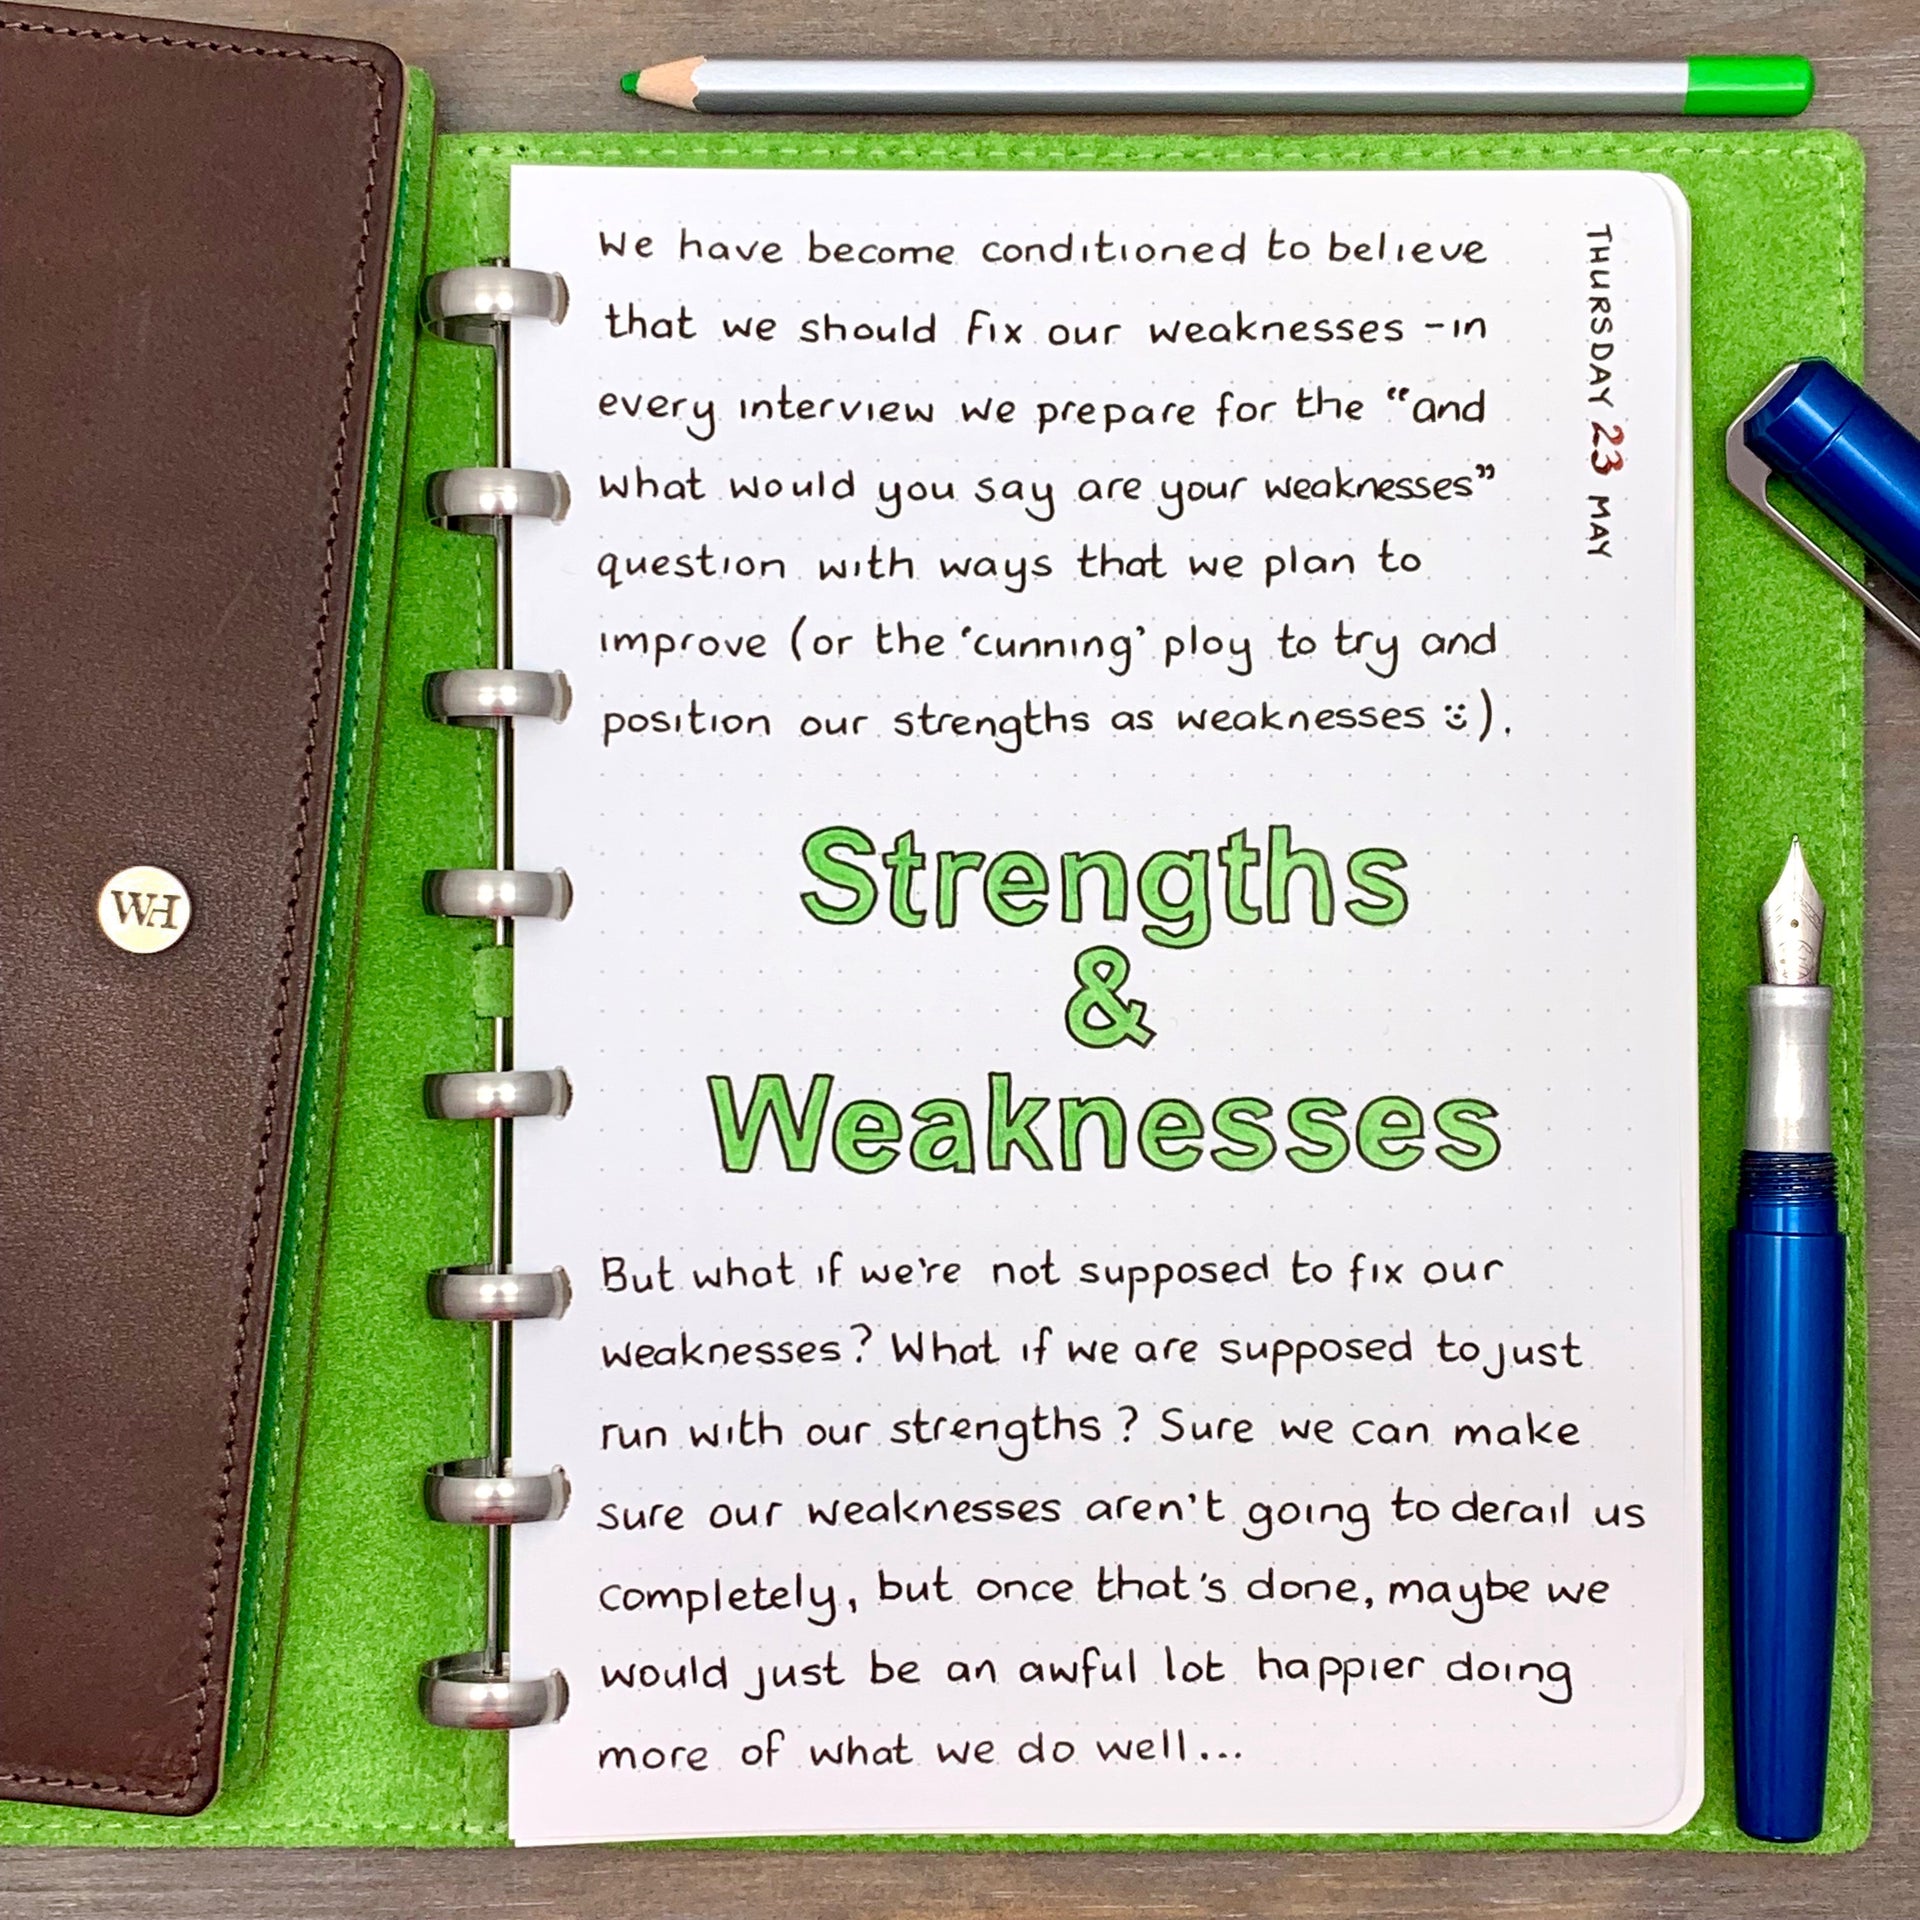 We have become conditioned to believe
that we should fix our weaknesses - in
every interview we prepare for the “and
what would you say are your weaknesses”
question with ways that we plan to
improve (or the ‘cunning’ ploy to try and
position our strengths as weaknesses ☺).
Strengths
&
Weaknesses
But what if we're not supposed to fix our
weaknesses? What if we are supposed to just
run with our strengths? Sure we can make
sure our weaknesses aren't going to derail us
completely, but once that's done, maybe we
would just be an awful lot happier doing
more of what we do well...
THURSDAY 23 MAY
WH